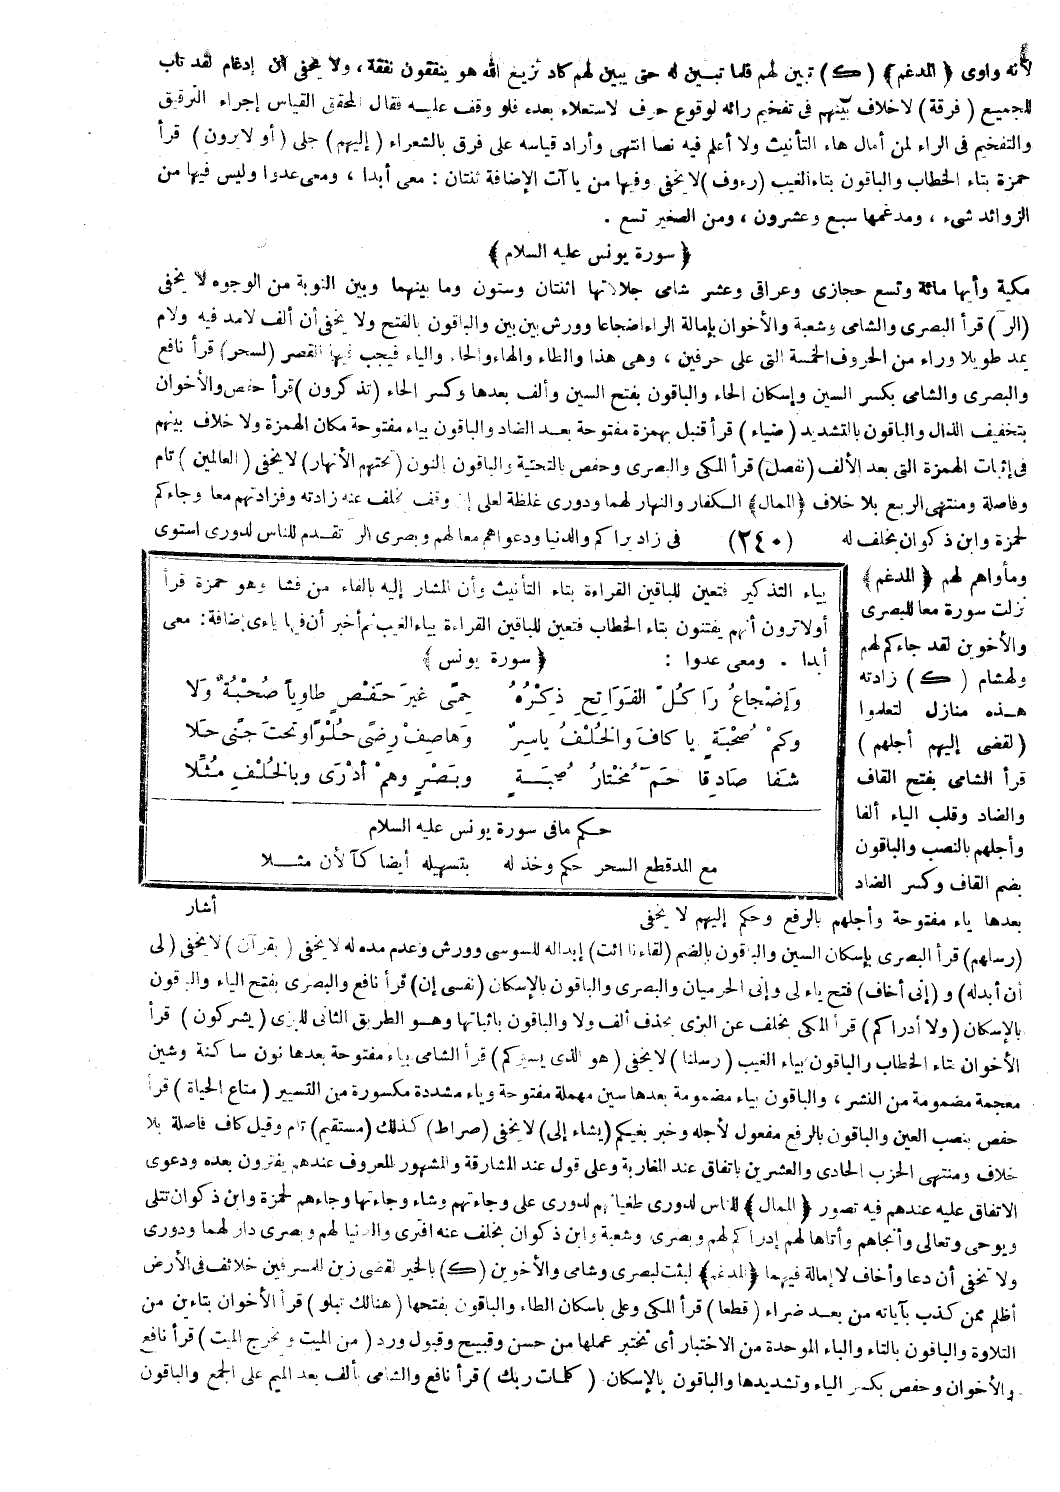 لأنه واوى ﴿ المدغم﴾ (ك) تبين لهم قلما تبين له حتى يبين لهم كاد تزيغ الله هو ينفقون نفقة ، ولا يخفى أن إدغام لقد تاب
للجميع ( فرقة ) لا خلاف بينهم فى تفخيم رائه لوقوع حرف لاستعلاء بعده فلو وقف عليه فقال المحقق القياس إجراء الترقيق
والتفخيم فى الراء لمن أمال هاء التأنيث ولا أعلم فيه نصا انتهى وأراد قياسه على فرق بالشعراء ( إليهم ) جلى ( أو لا يرون ) قرأ
حمزة بتاء الخطاب والباقون بتاء الغيب (رءوف) لا يخفى وفيها من ياآت الإضافة ثنتان : معى أبدا ، ومعى عدوا وليس فيها من
الزوائد شىء ، ومدغمها سبع وعشرون ، ومن الصغير تسع .
﴿ سورة يونس عليه السلام ﴾
مكية وآيها مائة وتسع حجازى وعراقى وعشر شامى جلالاتها اثنتان وستون وما بينهما وبين التوبة من الوجوه لا يخفى
(الر) قرأ البصرى والشامى وشعبة والأخوان بإمالة الراء اضجاعا وورش بين بين والباقون بالفتح ولا يخفى أن ألف لامد فيه ولام
يمد طويلا وراء من الحروف الخمسة التى على حرفين ، وهى هذا والطاء والهاء والحاء والياء فيجب فيها القصر (لسحر) قرأ نافع
والبصرى والشامى بكسر السين وإسكان الحاء والباقون بفتح السين وألف بعدها وكسر الحاء (تذكرون) قرأ حفص والأخوان
بتخفيف الذال والباقون بالتشديد ( ضياء ) قرأ قنبل بهمزة مفتوحة بعد الضاد والباقون بياء مفتوحة مكان الهمزة ولا خلاف بينهم
فى إثبات الهمزة التى بعد الألف (نفصل) قرأ المكى والبصرى وحفص بالتحتية والباقون النون (تحتهم الأنهار) لا يخفى ( العالمين ) تام
وفاصلة ومنتهى الربع بلا خلاف ﴿ الممال﴾ الكفار والنهار لهما ودورى غلظة لعلى إن وقف بخلف عنه زادته وفزادتهم معا وجاءكم
لحمزة وابن ذكوان بخلف له (٢٤٠) فى زاد يراكم والدنيا ودعواهم معا لهم وبصرى الر تقدم للناس لدورى استوى
ومأواهم لهم ﴿ المدغم ﴾
نزلت سورة معا للبصرى
والأخوين لقد جاءكم لهم
ولهشام ( ك ) زادته
هذه منازل لتعلموا
( لقضى إليهم أجلهم )
قرأ الشامى بفتح القاف
والضاد وقلب الياء ألفا
وأجلهم بالنصب والباقون
بضم القاف وكسر الضاد
بعدها ياء مفتوحة وأجلهم بالرفع وحكم إليهم لا يخفى
بياء التذكير فتعين للباقين القراءة بتاء التأنيث وأن المشار إليه بالفاء من فشا وهو حمزة قرأ
أولا ترون أنهم يفتنون بتاء الخطاب فتعين للباقين القراءة بياء الغيب ثم أخبر أن فيها ياءى إضافة : معى
أبدا . ومعى عدوا : ﴿ سورة يونس ﴾
وَإضْجَاعُ رَا كُلِّ الفَوَاتِحِ ذِكْرُهُ حِمًى غيرَ حَفْصٍ طاوِياً صُحْبَةٌ وَلَا
وكمْ صُحْبَةٍ يا كافَ والخُلْفُ ياسِرٌ وَهَا صِفْ رِضًى حُلْوًا وتحتَ جَنًى حَلا
شَفا صادِقا حَمَ مُخْتارُ صُحبَةٍ وبَصْرٍ وهمْ أدْرَى وبالخُلْفِ مُثِّلَا
حكم مافى سورة يونس عليه السلام
مع المد قطع السحر حكم وخذ له بتسهيله أيضا كآلآن مثلا
أشار
(رسلهم) قرأ البصرى بإسكان السين والباقون بالضم (لقاءنا ائت) إبداله للسوسى وورش وعدم مده له لا يخفى ( بقرآن ) لا يخفى (لى
أن أبدله) و (إنى أخاف) فتح ياء لى وإنى الحرميان والبصرى والباقون بالإسكان (نفسى إن) قرأ نافع والبصرى بفتح الياء والباقون
بالإسكان ( ولا أدراكم ) قرأ المكى بخلف عن البزى بحذف ألف ولا والباقون باثباتها وهو الطريق الثانى للبزى (يشركون) قرأ
الأخوان بتاء الخطاب والباقون بياء الغيب ( رسلنا ) لا يخفى ( هو الذى يسيركم ) قرأ الشامى بياء مفتوحة بعدها نون ساكنة وشين
معجمة مضمومة من النشر ، والباقون بياء مضمومة بعدها سين مهملة مفتوحة وياء مشددة مكسورة من التسيير ( متاع الحياة ) قرأ
حفص بنصب العين والباقون بالرفع مفعول لأجله وخبر بغيكم (يشاء إلى) لا يخفى (صراط) كذلك (مستقيم) تام وقيل كاف فاصلة بلا
خلاف ومنتهى الحزب الحادى والعشرين باتفاق عند المغاربة وعلى قول عند المشارقة والمشهور المعروف عندهم يفترون بعده ودعوى
الاتفاق عليه عندهم فيه تصور ﴿ الممال﴾ للناس لدورى طغيانهم لدورى على وجاءتهم وشاء وجاءتها وجاءهم لحمزة وابن ذكوان تتلى
ويوحى وتعالى وأنجاهم وأتاها لهم إدراكم لهم وبصرى وشعبة وابن ذكوان بخلف عنه افترى والدنيا لهم وبصرى دار لهما ودورى
ولا تخفى أن دعا وأخاف لا إمالة فيهما ﴿المدغم﴾ لبثت لبصرى وشامى والأخوين (ك) بالخير لقضى زين للمسرفين خلائف فى الأرض
أظلم ممن كذب بآياته من بعد ضراء ( قطعا ) قرأ المكى وعلى باسكان الطاء والباقون بفتحها ( هنالك تبلو ) قرأ الأخوان بتاءين من
التلاوة والباقون بالتاء والباء الموحدة من الاختبار أى تختبر عملها من حسن وقبيح وقبول ورد ( من الميت ويخرج الميت ) قرأ نافع
والأخوان وحفص بكسر الياء وتشديدها والباقون بالإسكان ( كلمات ربك ) قرأ نافع والشامى بألف بعد الميم على الجمع والباقون